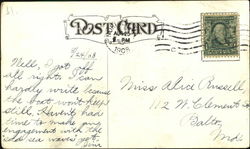 POST CARD
1908
8/24/08
Nell, I got off
all right. I can
hardly write because
the boat won't keep
still, Haven't had
time to make any
engagement with the
sea waves yet.
Miss Alice Russell,
112 W. Clement
Balto,
Md.